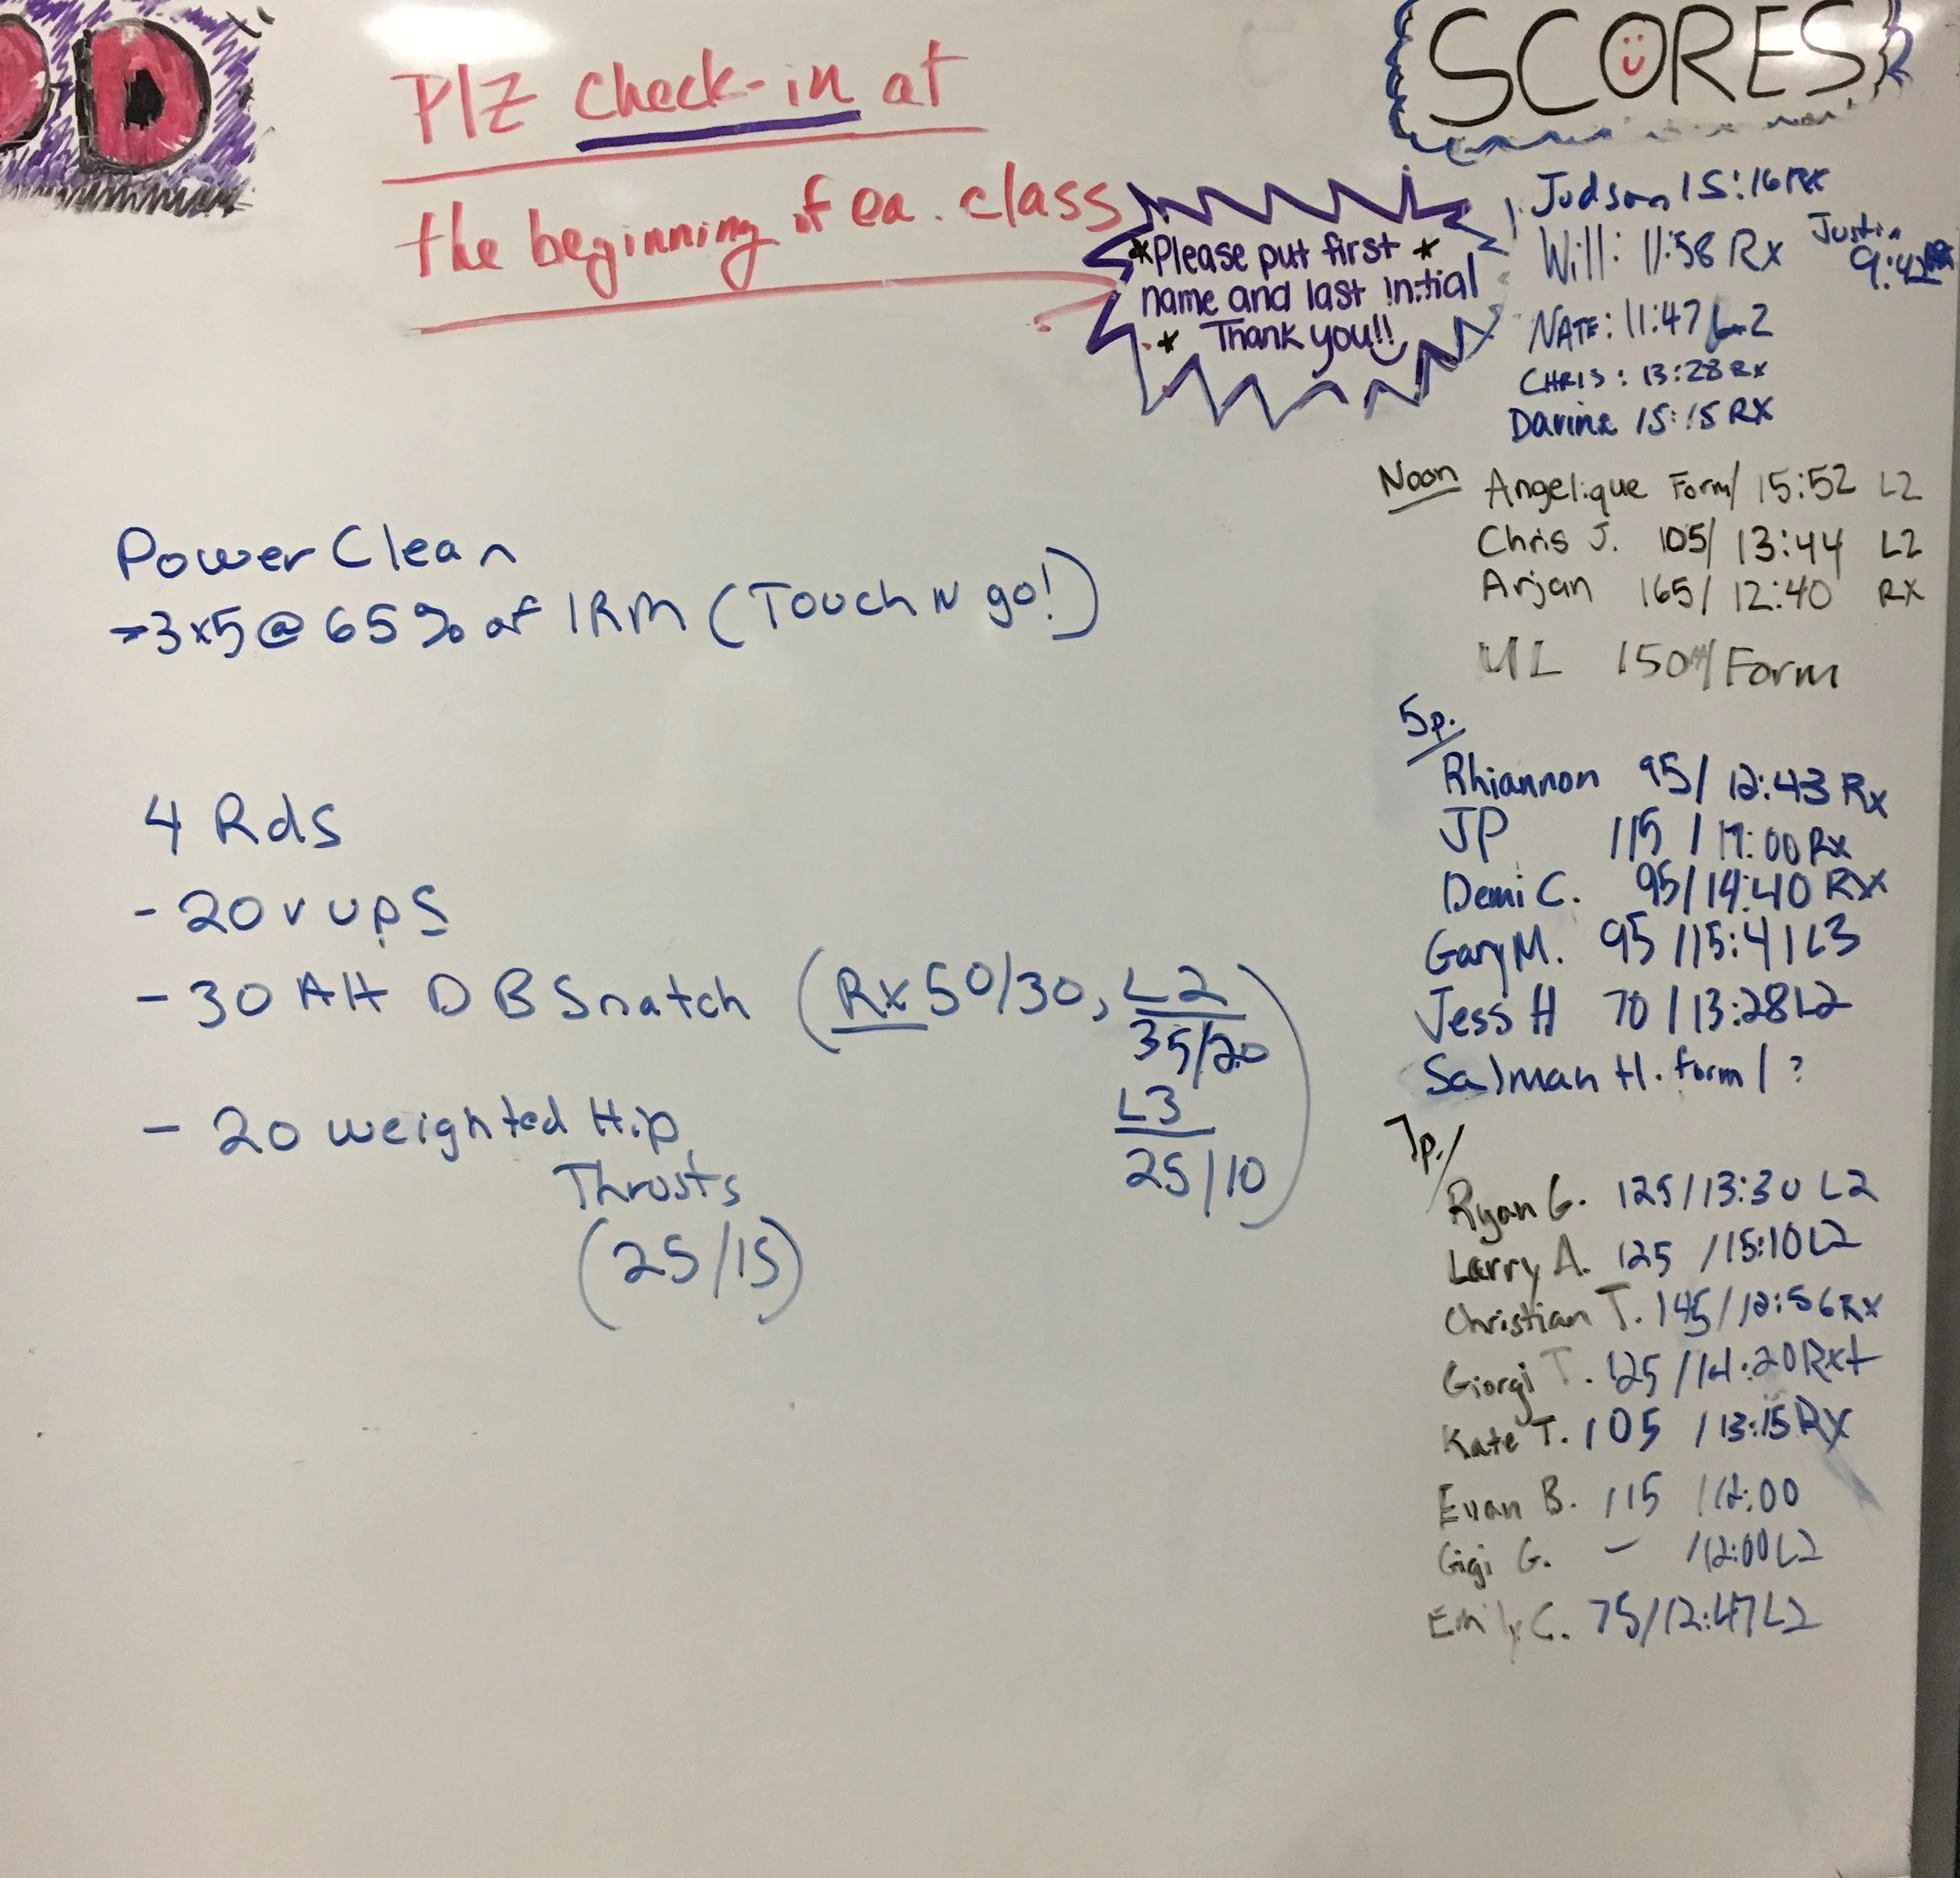 D
Plz check-in at
the beginning of ea. class
*Please put first *
name and last initial
* Thank you!!
Power Clean
→3x5@65% of 1RM (Touch N go!)
4 Rds
- 20 v ups
- 30 Alt DB Snatch (Rx 50/30, L2
35/20
L3
25/10)
- 20 weighted Hip
Thrusts
(25/15)
SCORES
Judson 15:16 RX
Will: 11:58 Rx
Justin
NATE: 11:47 L2
CHRIS: 13:28 Rx
15:15 RX
Noon Angelique Form/ 15:52 L2
Chris J. 105/ 13:44 L2
Arjan 165/ 12:40 RX
150#/Form
5p.
Rhiannon 95/ 12:43 Rx
JP 115 / 17:00 Rx
Demi C. 95/14:40 RX
Gary M. 95 /15:41 L3
Jess H 70 /13:28 L2
Salman H. form / ?
7p./
Ryan G. 125/13:30 L2
Larry A. 125 /15:10 L2
Christian T. 145/12:56 Rx
Giorgi T. 125 /14:20 Rx+
Kate T. 105 /13:15 RX
Evan B. 115 /12:00
Gigi G. - /12:00 L2
Emily C. 75/12:47 L2